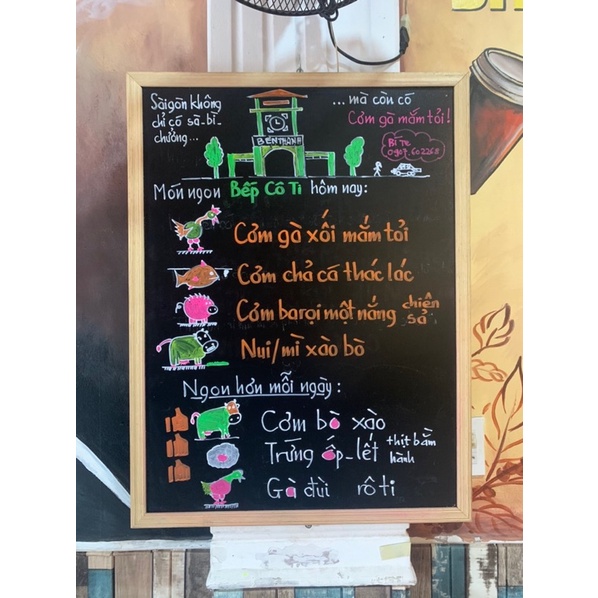 Sài gòn không
chỉ có sà-bì-
chưởng...
... mà còn có
Cơm gà mắm tỏi!
BẾN THÀNH
Món ngon Bếp Cô Ti hôm nay:
Cơm gà xối mắm tỏi
Cơm chả cá thác lác
Cơm ba rọi một nắng chiên sả
Nui/mì xào bò
Ngon hơn mỗi ngày:
Cơm bò xào
Trứng ốp-lết thịt bằm hành
Gà đùi rô ti